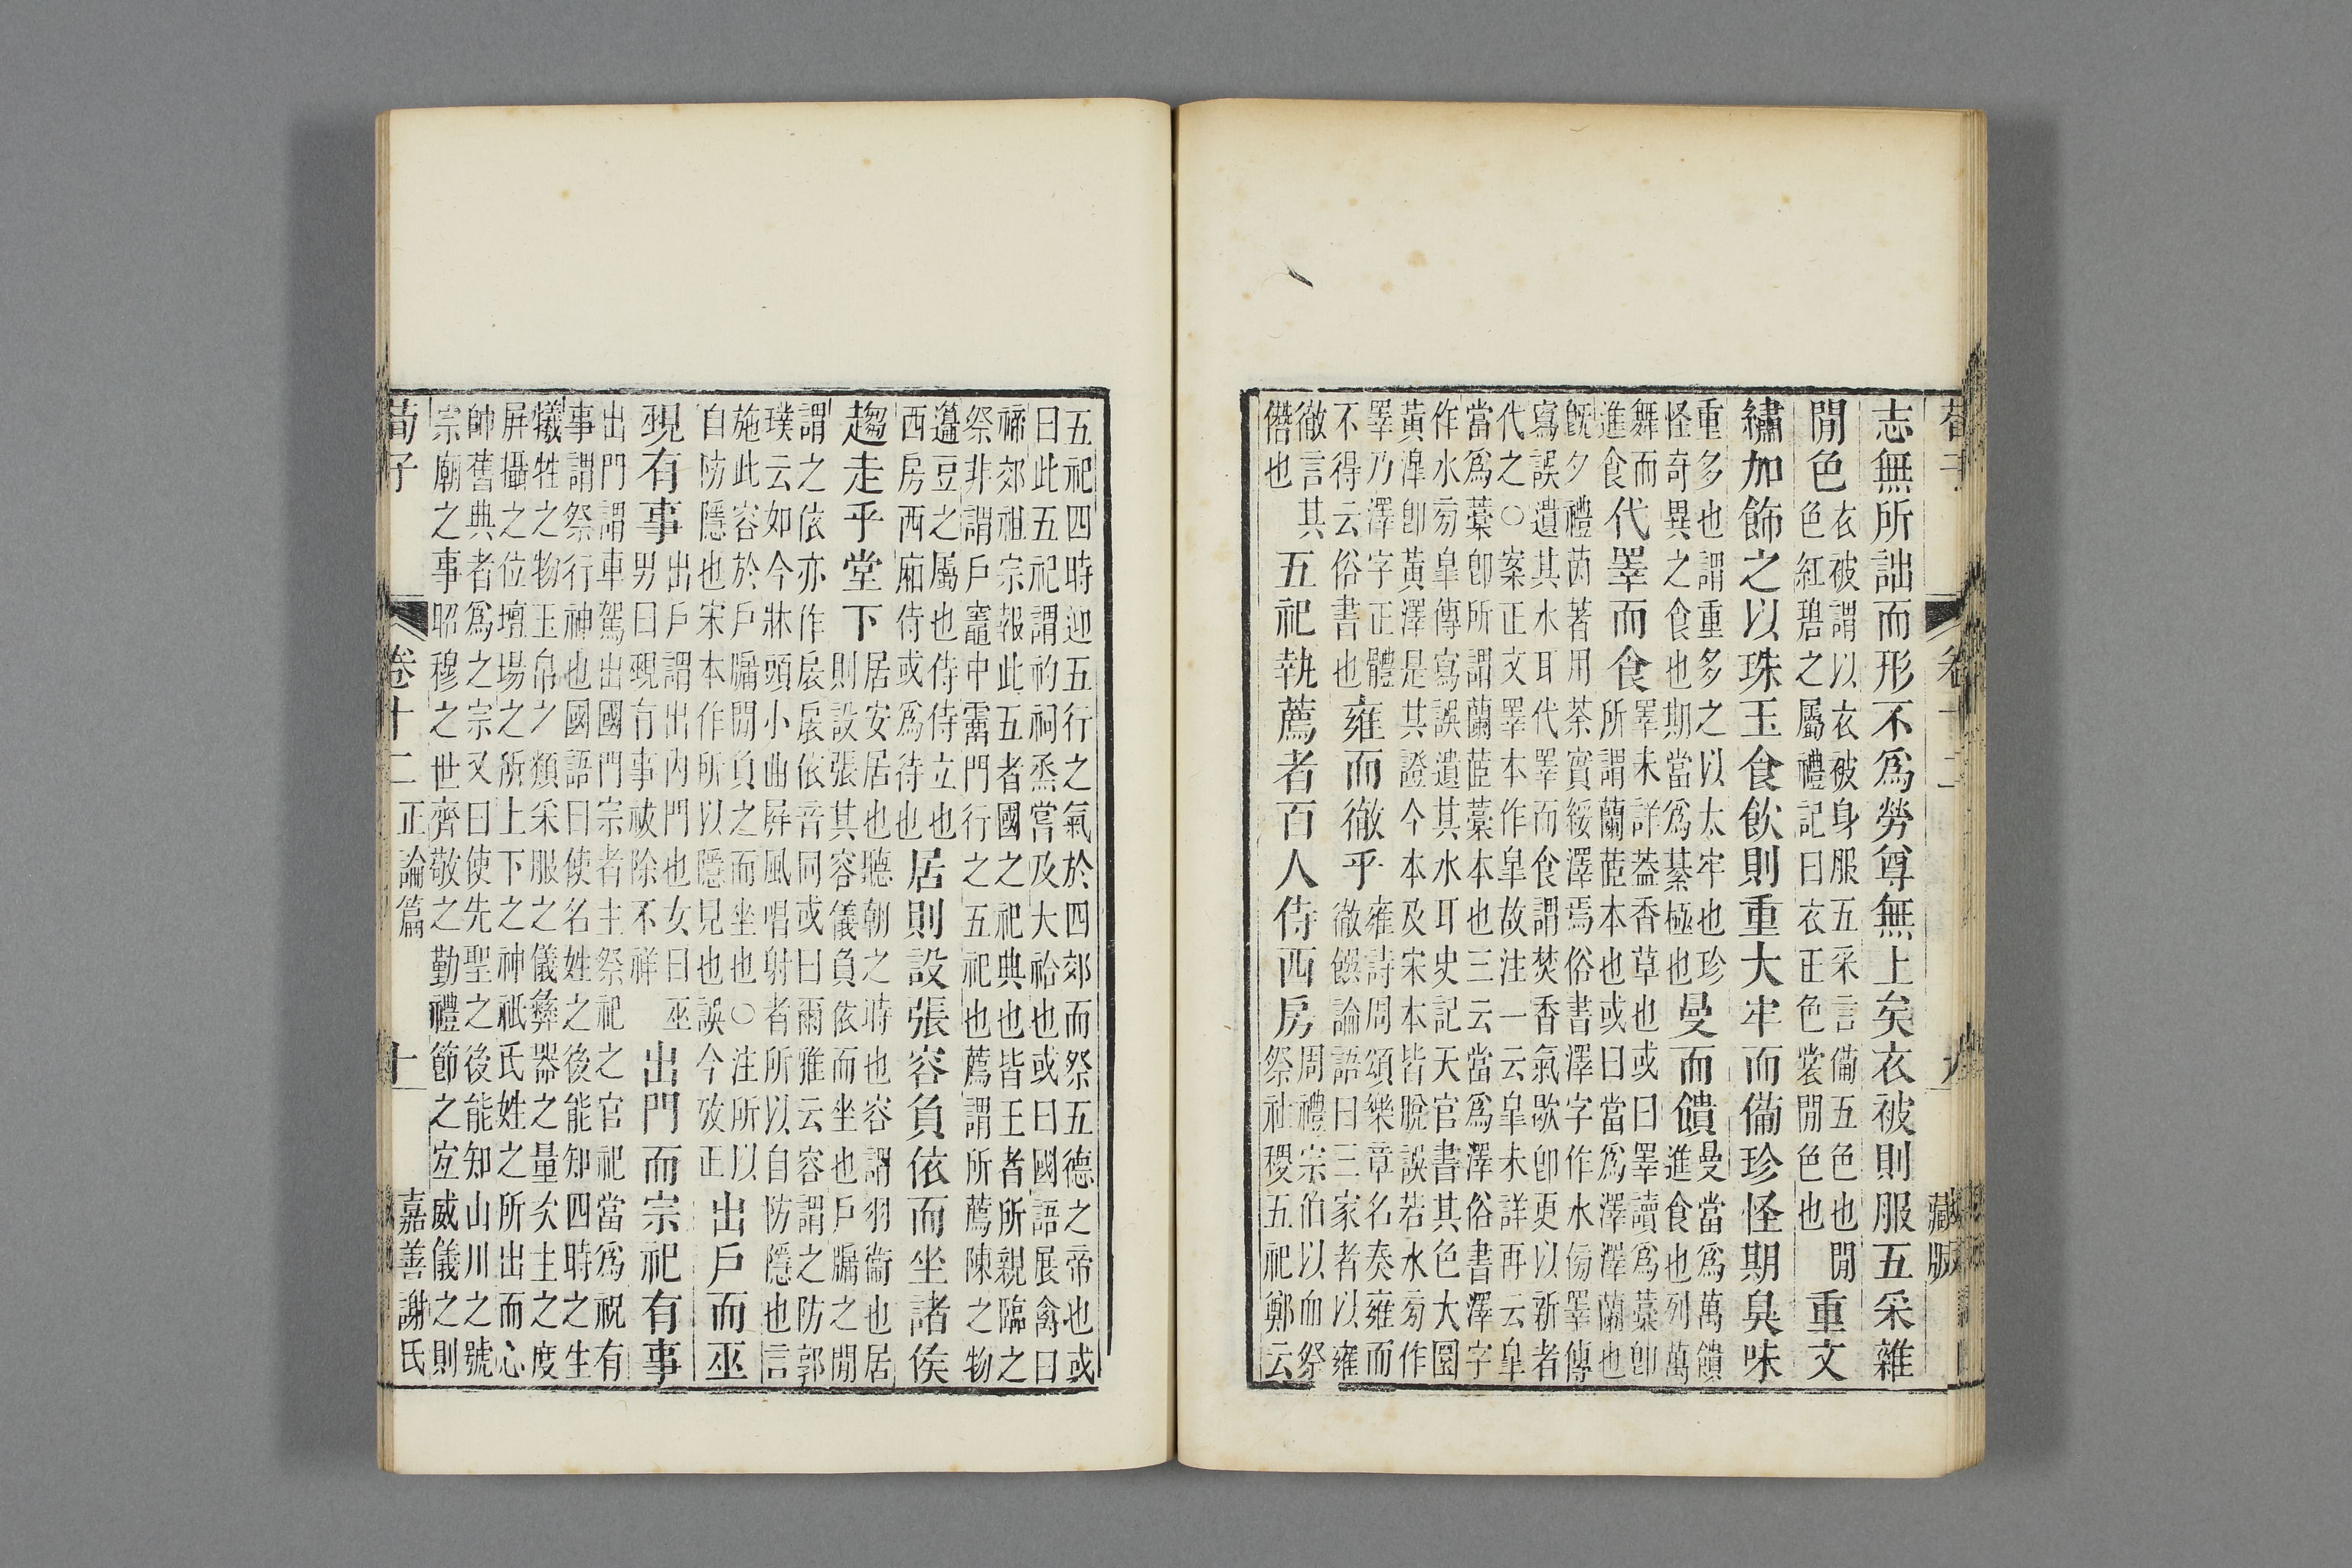 荀子　卷十二　九　藏版
志無所詘而形不爲勞尊無上矣衣被則服五采雜
閒色
衣被謂以衣被身服五采言備五色也閒
色紅碧之屬禮記曰衣正色裳閒色也
重文
繡加飾之以珠玉食飲則重大牢而備珍怪期臭味
重多也謂重多之以太牢也珍
怪奇異之食也期當爲綦極也
曼而饋
曼當爲萬饋
進食也列萬
舞而
進食
代睪而食
睪未詳葢香草也或曰睪讀爲藁卽
所謂蘭茝本也或曰當爲澤澤蘭也
旣夕禮茵著用荼實綏澤焉俗書澤字作水傍睪傳
寫誤遺其水耳代睪而食謂焚香氣歇卽更以新者
代之○案正文睪本作皐故注一云皐未詳再云皐
當爲藁卽所謂蘭茝藁本也三云當爲澤俗書澤字
作水旁皐傳寫誤遺其水耳史記天官書其色大圜
黃滜卽黃澤是其證今本及宋本皆脫誤若水旁作
睪乃澤字正體
不得云俗書也
雍而徹乎
雍詩周頌樂章名奏雍而
徹饌論語曰三家者以雍
徹言其
僭也
五祀執薦者百人侍西房
周禮宗伯以血祭
祭社稷五祀鄭云
五祀四時迎五行之氣於四郊而祭五德之帝也或
曰此五祀謂礿祠烝嘗及大祫也或曰國語展禽曰
禘郊祖宗報此五者國之祀典也皆王者所親臨之
祭非謂戶竈中霤門行之五祀也薦謂所薦陳之物
籩豆之屬也侍侍立也
西房西廂侍或爲待也
居則設張容負依而坐諸侯
趨走乎堂下
居安居也聽朝之時也容謂羽衞也居
則設張其容儀負依而坐也戶牖之閒
謂之依亦作扆扆依音同或曰爾雅云容謂之防郭
璞云如今牀頭小曲屏風唱射者所以自防隱也言
施此容於戶牖閒負之而坐也○注所以
自防隱也宋本作所以隱見也誤今攷正
出戶而巫
覡有事
出戶謂出內門也女曰巫
男曰覡有事祓除不祥
出門而宗祀有事
出門謂車駕出國門宗者主祭祀之官祀當爲祝有
事謂祭行神也國語曰使名姓之後能知四時之生
犧牲之物玉帛之類采服之儀彝器之量次主之度
屏攝之位壇場之所上下之神祇氏姓之所出而心
帥舊典者爲之宗又曰使先聖之後能知山川之號
宗廟之事昭穆之世齊敬之勤禮節之宜威儀之則
荀子　卷十二　正論篇　十　嘉善謝氏